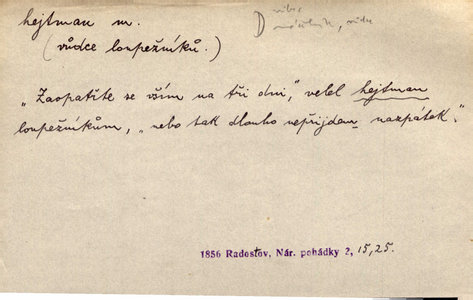 hejtman m.
(vůdce loupežníků.)
D náčelník, vůdce
„Zaopatřte se vším na tři dni," velel hejtman
loupežníkům, „nebo tak dlouho nepřijdam nazpátek."
1856 Radostov, Nár. pohádky 2, 15, 25.